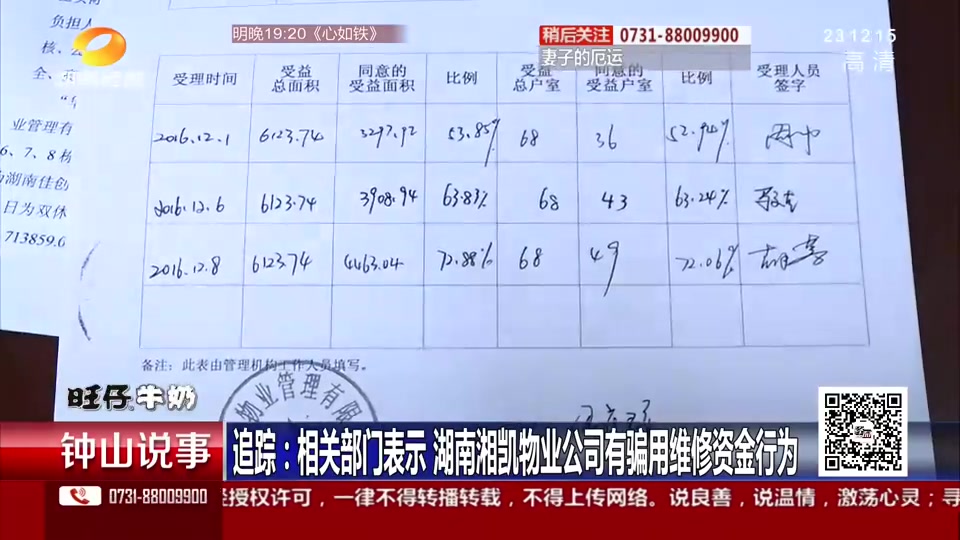 明晚19:20《心如铁》
稍后关注 0731-88009900
妻子的厄运
23 12 15
高清
负担人
核、
全、
业管理有
6、7、8栋
湖南佳创
日为双休
713859.6
受理时间 受益总面积 同意的受益面积 比例 受益总户室 同意的受益户室 比例 受理人员签字
2016.12.1 6123.74 3297.92 53.85% 68 36 52.94%
2016.12.6 6123.74 3908.94 63.83% 68 43 63.24%
2016.12.8 6123.74 4463.04 72.88% 68 49 72.06%
备注：此表由管理机构工作人员填写。
物业管理有限
旺仔牛奶
钟山说事
追踪：相关部门表示 湖南湘凯物业公司有骗用维修资金行为
0731-88009900
授权许可，一律不得转播转载，不得上传网络。说良善，说温情，激荡心灵；寻